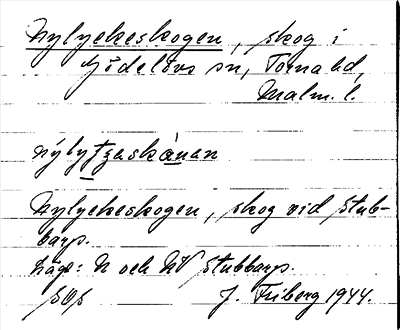 Nylyckeskogen, skog i
Gödelövs sn, Torna hd,
Malm. l.
Nylyckeskogen, skog vid Stub-
barp.
Läge: N och NV Stubbarp.
J. Friberg 1944.